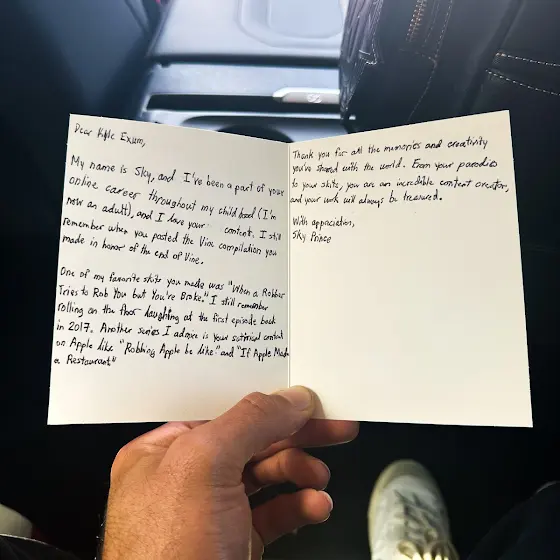 Dear Kyle Exum,
My name is Sky, and I've been a part of your
online career throughout my childhood (I'm
now an adult), and I love your content. I still
remember when you posted the Vine compilation you
made in honor of the end of Vine.
One of my favorite skits you made was "When a Robber
Tries to Rob You but You're Broke." I still remember
rolling on the floor laughing at the first episode back
in 2017. Another series I admire is your satirical content
on Apple like "Robbing Apple be like" and "If Apple Made
a Restaurant"
Thank you for all the memories and creativity
you've shared with the world. From your parodies
to your skits, you are an incredible content creator,
and your work will always be treasured.
With appreciation,
Sky Prince